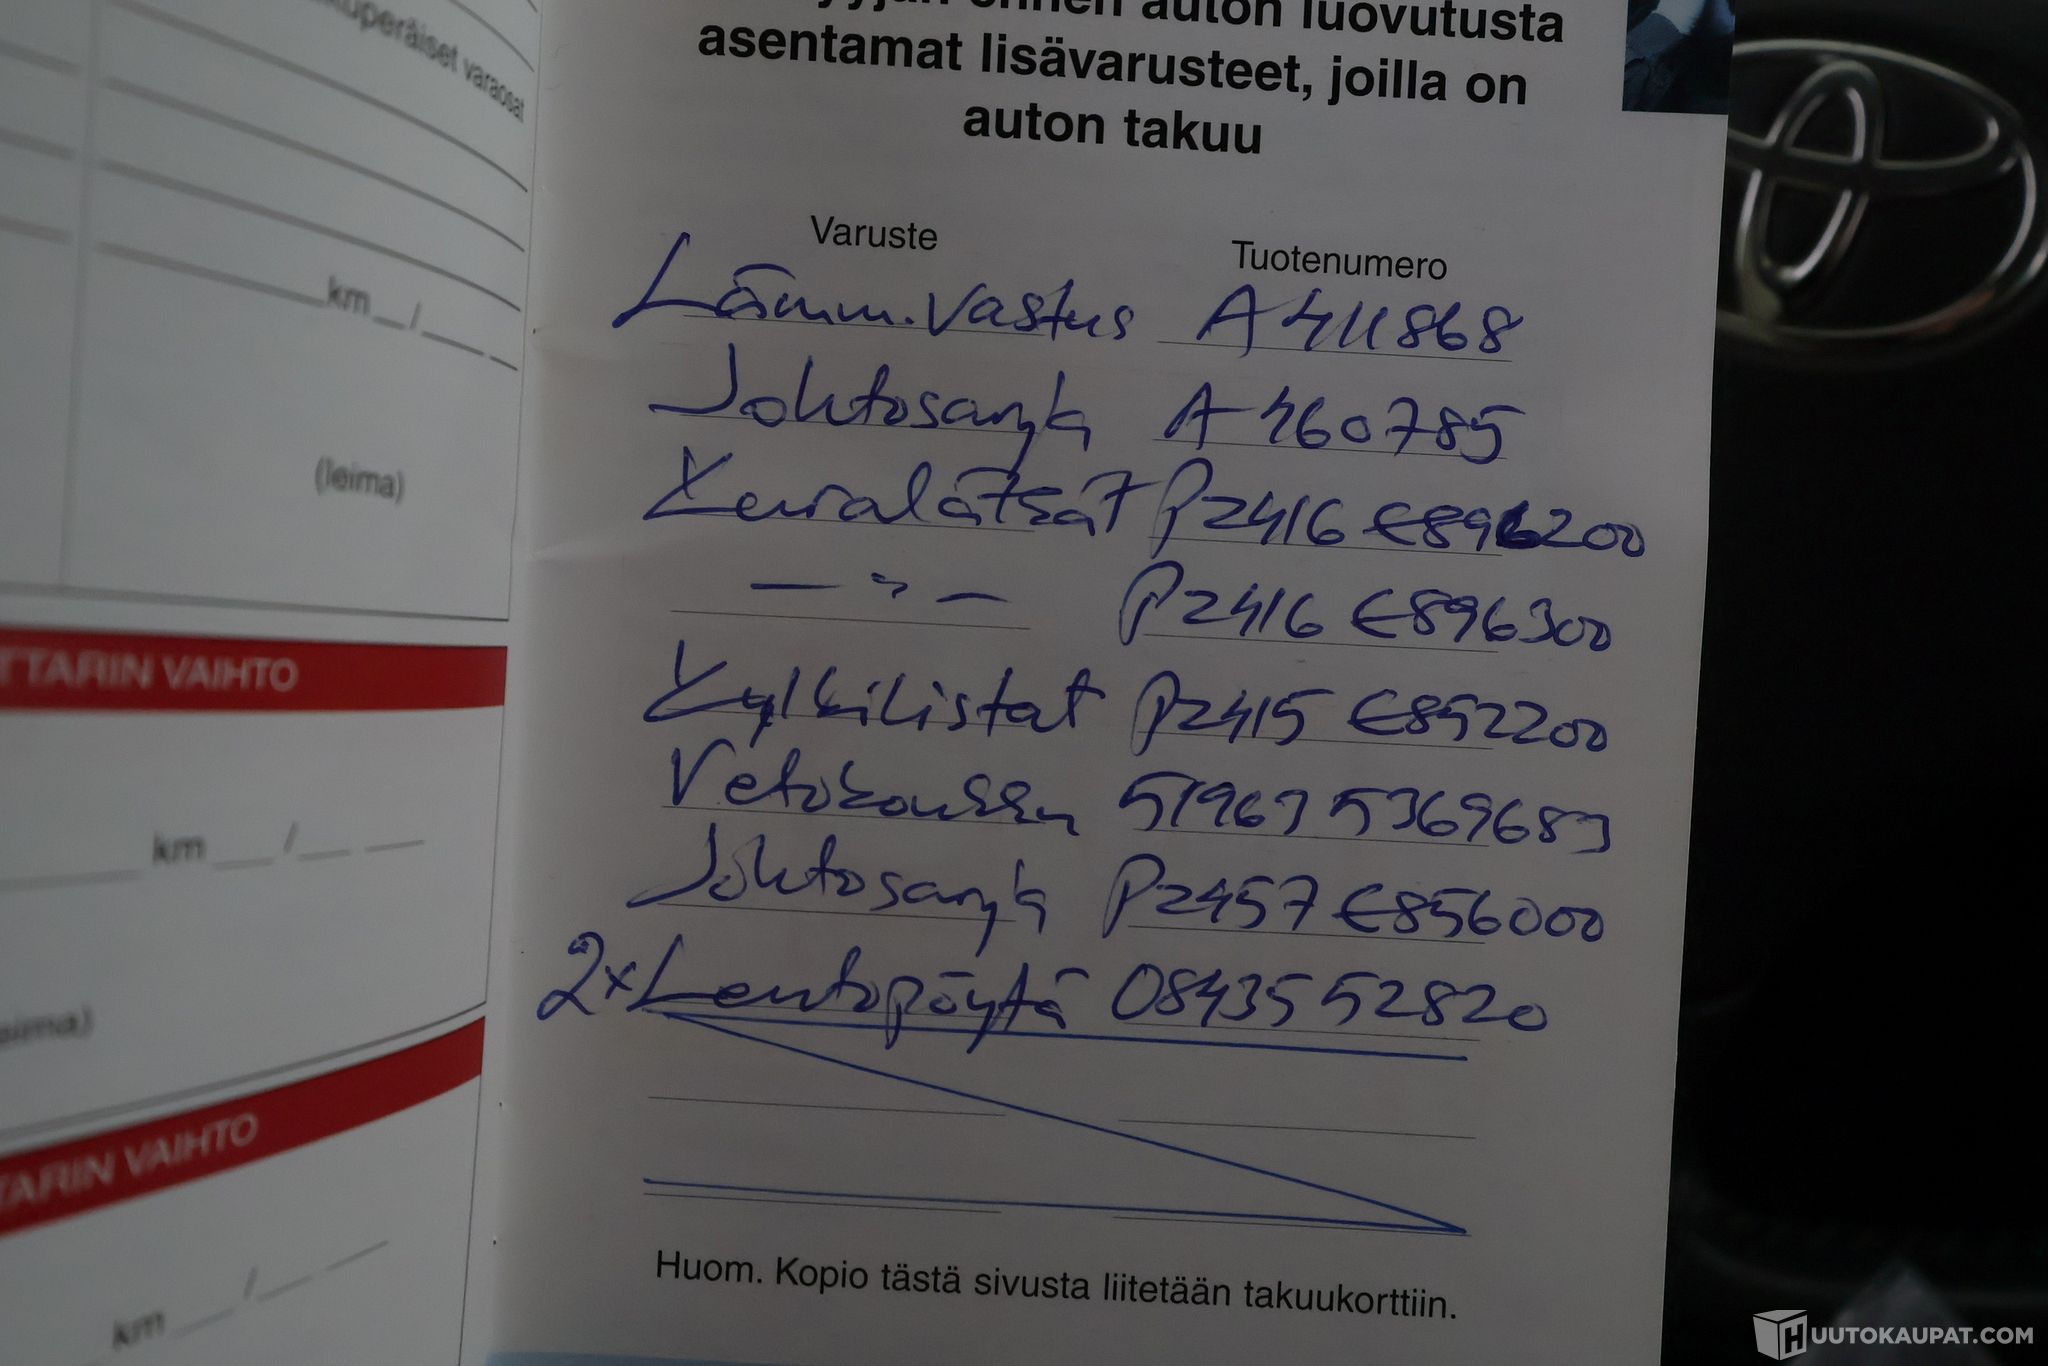 kuperäiset varaosat
km __/__ __
(leima)
TTARIN VAIHTO
km __/__ __
(leima)
TARIN VAIHTO
km __/__ __
ennen auton luovutusta
asentamat lisävarusteet, joilla on
auton takuu
Varuste Tuotenumero
Lämm.vastus A411868
Johtosarja A460785
Kuralätkät PZ416 E896200
— " — PZ416 E896300
Kylkilistat PZ415 E852200
Vetokoukku 51963 5369683
Johtosarja PZ457 E856000
2x Lentopöytä 08435 52820
Huom. Kopio tästä sivusta liitetään takuukorttiin.
HUUTOKAUPAT.COM